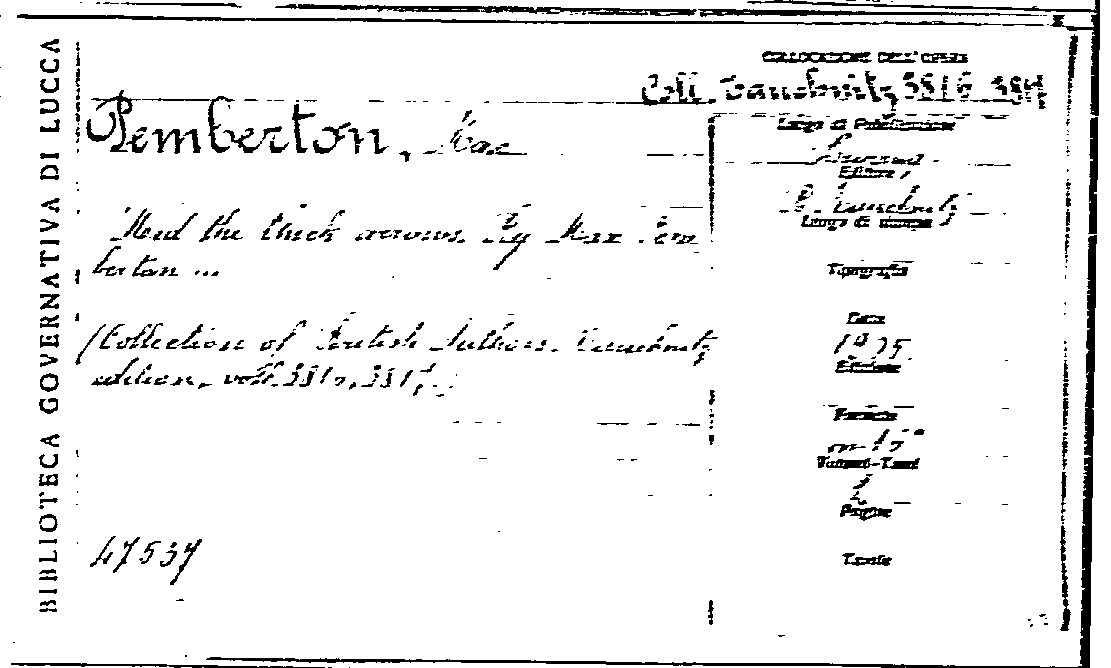 BIBLIOTECA GOVERNATIVA DI LUCCA
COLLOCAZIONE DELL'OPERA
Coll. Tauchnitz 3816
Pemberton, Max
Luogo di Pubblicazione
Editore
B. Tauchnitz
Luogo di stampa
Mid the thick arrows. By Max Pem
berton ...
Tipografia
Data
(Collection of British Authors. Tauchnitz
edition, voll.
Edizione
Formato
Volumi-Tomi
2
Pagine
Tavole
47537